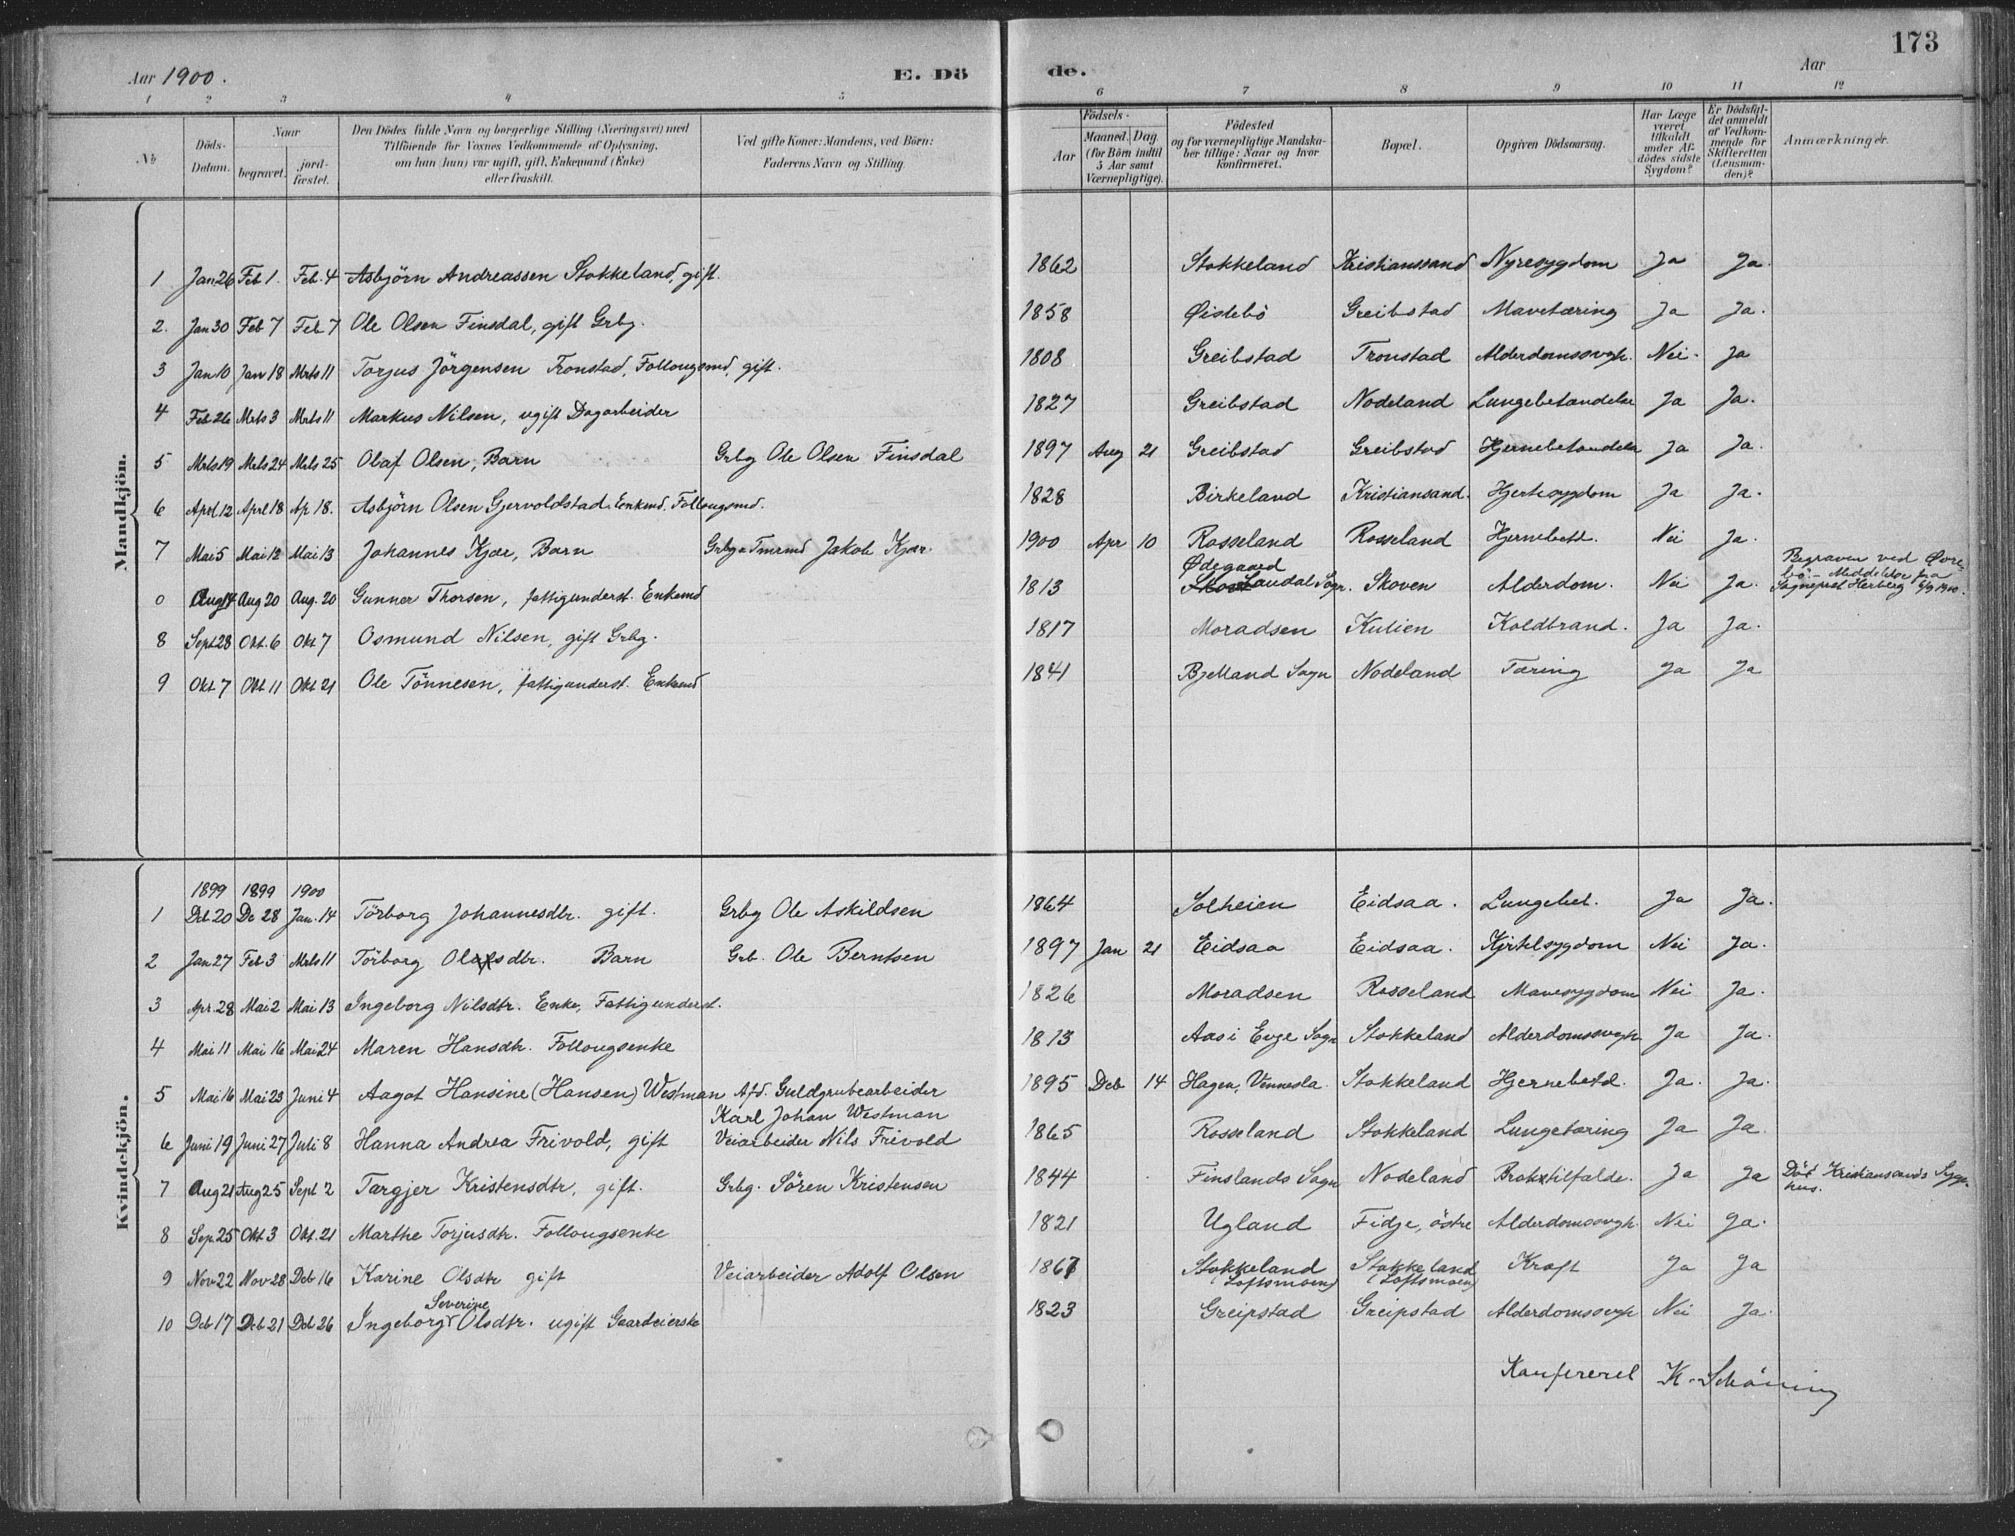 173
Aar 1900. E. Dö de. Aar
1 2 3 4 5 6 7 8 9 10 11 12
No Döds-Datum. Naar begravet. jordfæstet. Den Dödes fulde Navn og borgerlige Stilling (Næringsvei) med Tilföiende for Voxnes Vedkommende af Oplysning, om han (hun) var ugift, gift, Enkemand (Enke) eller fraskilt. Ved gifte Koner: Mandens, ved Börn: Faderens Navn og Stilling. Födsels- Aar Maaned. Dag (for Börn indtil 5 Aar samt Værnepligtige). Födested og for værnepligtige Mandskaber tillige: Naar og hvor konfirmeret. Bopæl. Opgiven Dödsaarsag. Har Læge været tilkaldt under Afdödes sidste Sygdom? Er Dödsfaldet anmeldt af Vedkommende for Skifteretten (Lensmanden)? Anmærkninger.
Mandkjön.
1 Jan 26 Feb 1. Feb. 4 Asbjörn Andreassen Stokkeland, gift. 1862 Stokkeland Kristianssand Nyresygdom Ja Ja.
2. Jan 30 Feb 7 Feb 7 Ole Olsen Finsdal, gift Grbg. 1858 Øislebö Greibstad Mavetæring Ja Ja.
3 Jan 10 Jan 18 Mrts 11 Torjus Jörgensen Tronstad, Follougsmd, gift. 1808 Greibstad Tronstad Alderdomssvgh. Nei. Ja
4 Feb 26 Mrts 3 Mrts 11 Markus Nilsen, ugift Dagarbeider 1827 Greibstad Nodeland Lungebetændelse Ja Ja.
5 Mrts 19 Mrts 24 Mrts 25 Olaf Olsen, Barn Grbg Ole Olsen Finsdal 1897 Aug 21 Greibstad Greibstad Hjernebetændelse Ja Ja.
6 Aprl 12 Aprl 18 Ap 18. Asbjörn Olsen Gjervoldstad. Enkmd. Follougsmd. 1828 Birkeland Kristiansand. Hjertesygdom Ja Ja.
7 Mai 5 Mai 12 Mai 13 Johannes Kjær, Barn Grbg & Tmrmd Jakob Kjær. 1900 Apr 10 Rosseland Rosseland Hjernebetd. Nei Ja.
0 Aug 14 Aug 20 Aug. 20 Gunner Thorsen, fattigunderst. Enkemd 1813 Ødegaard Laudal Sogn. Skoven Alderdom. Nei Ja. Begraven ved Øvrebö. - Meddelelse fra Sognepret Herberg 6/9 1900.
8 Sept 28 Okt. 6 Okt 7 Osmund Nilsen, gift Grbg. 1817 Moradsen Kulien Koldbrand. Ja Ja.
9 Okt 7 Okt 11 Okt 21 Ole Tönnesen, fattigunderst. Enkemd 1841 Bjelland Sogn Nodeland Tæring Ja Ja
Kvindekjön.
1899 1899 1900
1 Deb 20 De 28 Jan. 14 Törborg Johannesdtr. gift. Grbg Ole Askildsen 1864 Solheien Eidsaa. Lungebet. Ja Ja.
2 Jan 27 Feb 3 Mrts 11 Törborg Olsdtr. Barn Grb. Ole Berntsen 1897 Jan 21 Eidsaa Eidsaa. Kjrtelsygdom Nei Ja.
3 Apr. 28 Mai 2 Mai 13 Ingeborg Nilsdtr. Enke, Fattigunderst. 1826 Moradsen Rosseland Mavesygdom Nei Ja.
4 Mai 11 Mai 16 Mai 24 Maren Hansdtr. Follougsenke 1813 Aas i Evje Sogn Stokkeland Alderdomssvgh Ja Ja.
5 Mai 16 Mai 23 Juni 4 Aagot Hansine (Hansen) Westman Afd. Guldgrubearbeider 1895 Deb 14 Hagen, Vennesla. Stokkeland Hjernebetd. Ja. Ja.
Karl Johan Westman
6 Juni 19 Juni 27 Juli 8 Hanna Andrea Frivold, gift Veiarbeider Nils Frivold 1865 Rosseland Stokkeland Lungetæring Ja Ja.
7 Aug 21 Aug 25 Sept 2 Targjer Kristensdtr, gift. Grbg. Sören Kristensen 1844 Finslands Sogn Nodeland Broktilfælde. Ja Ja Död Kristiansands Sygehus.
8 Sep. 25 Okt 3 Okt. 21 Marthe Torjusdtr. Follougsenke 1821 Ugland Fidje, östre Alderdomssvgh. Nei Ja.
9 Nov 22 Nov 28 Deb 16 Karine Olsdtr gift Veiarbeider Adolf Olsen 1867 Stokkeland (Loftsmoen) Stokkeland (Loftsmoen) Kræft Ja Ja
10 Deb 17 Deb 21 Deb 26 Ingeborg Severine Olsdtr. ugift Gaarbeierske 1823 Greipstad Greipstad Alderdomssvgh Nei Ja.
Konfereret K. Schöning